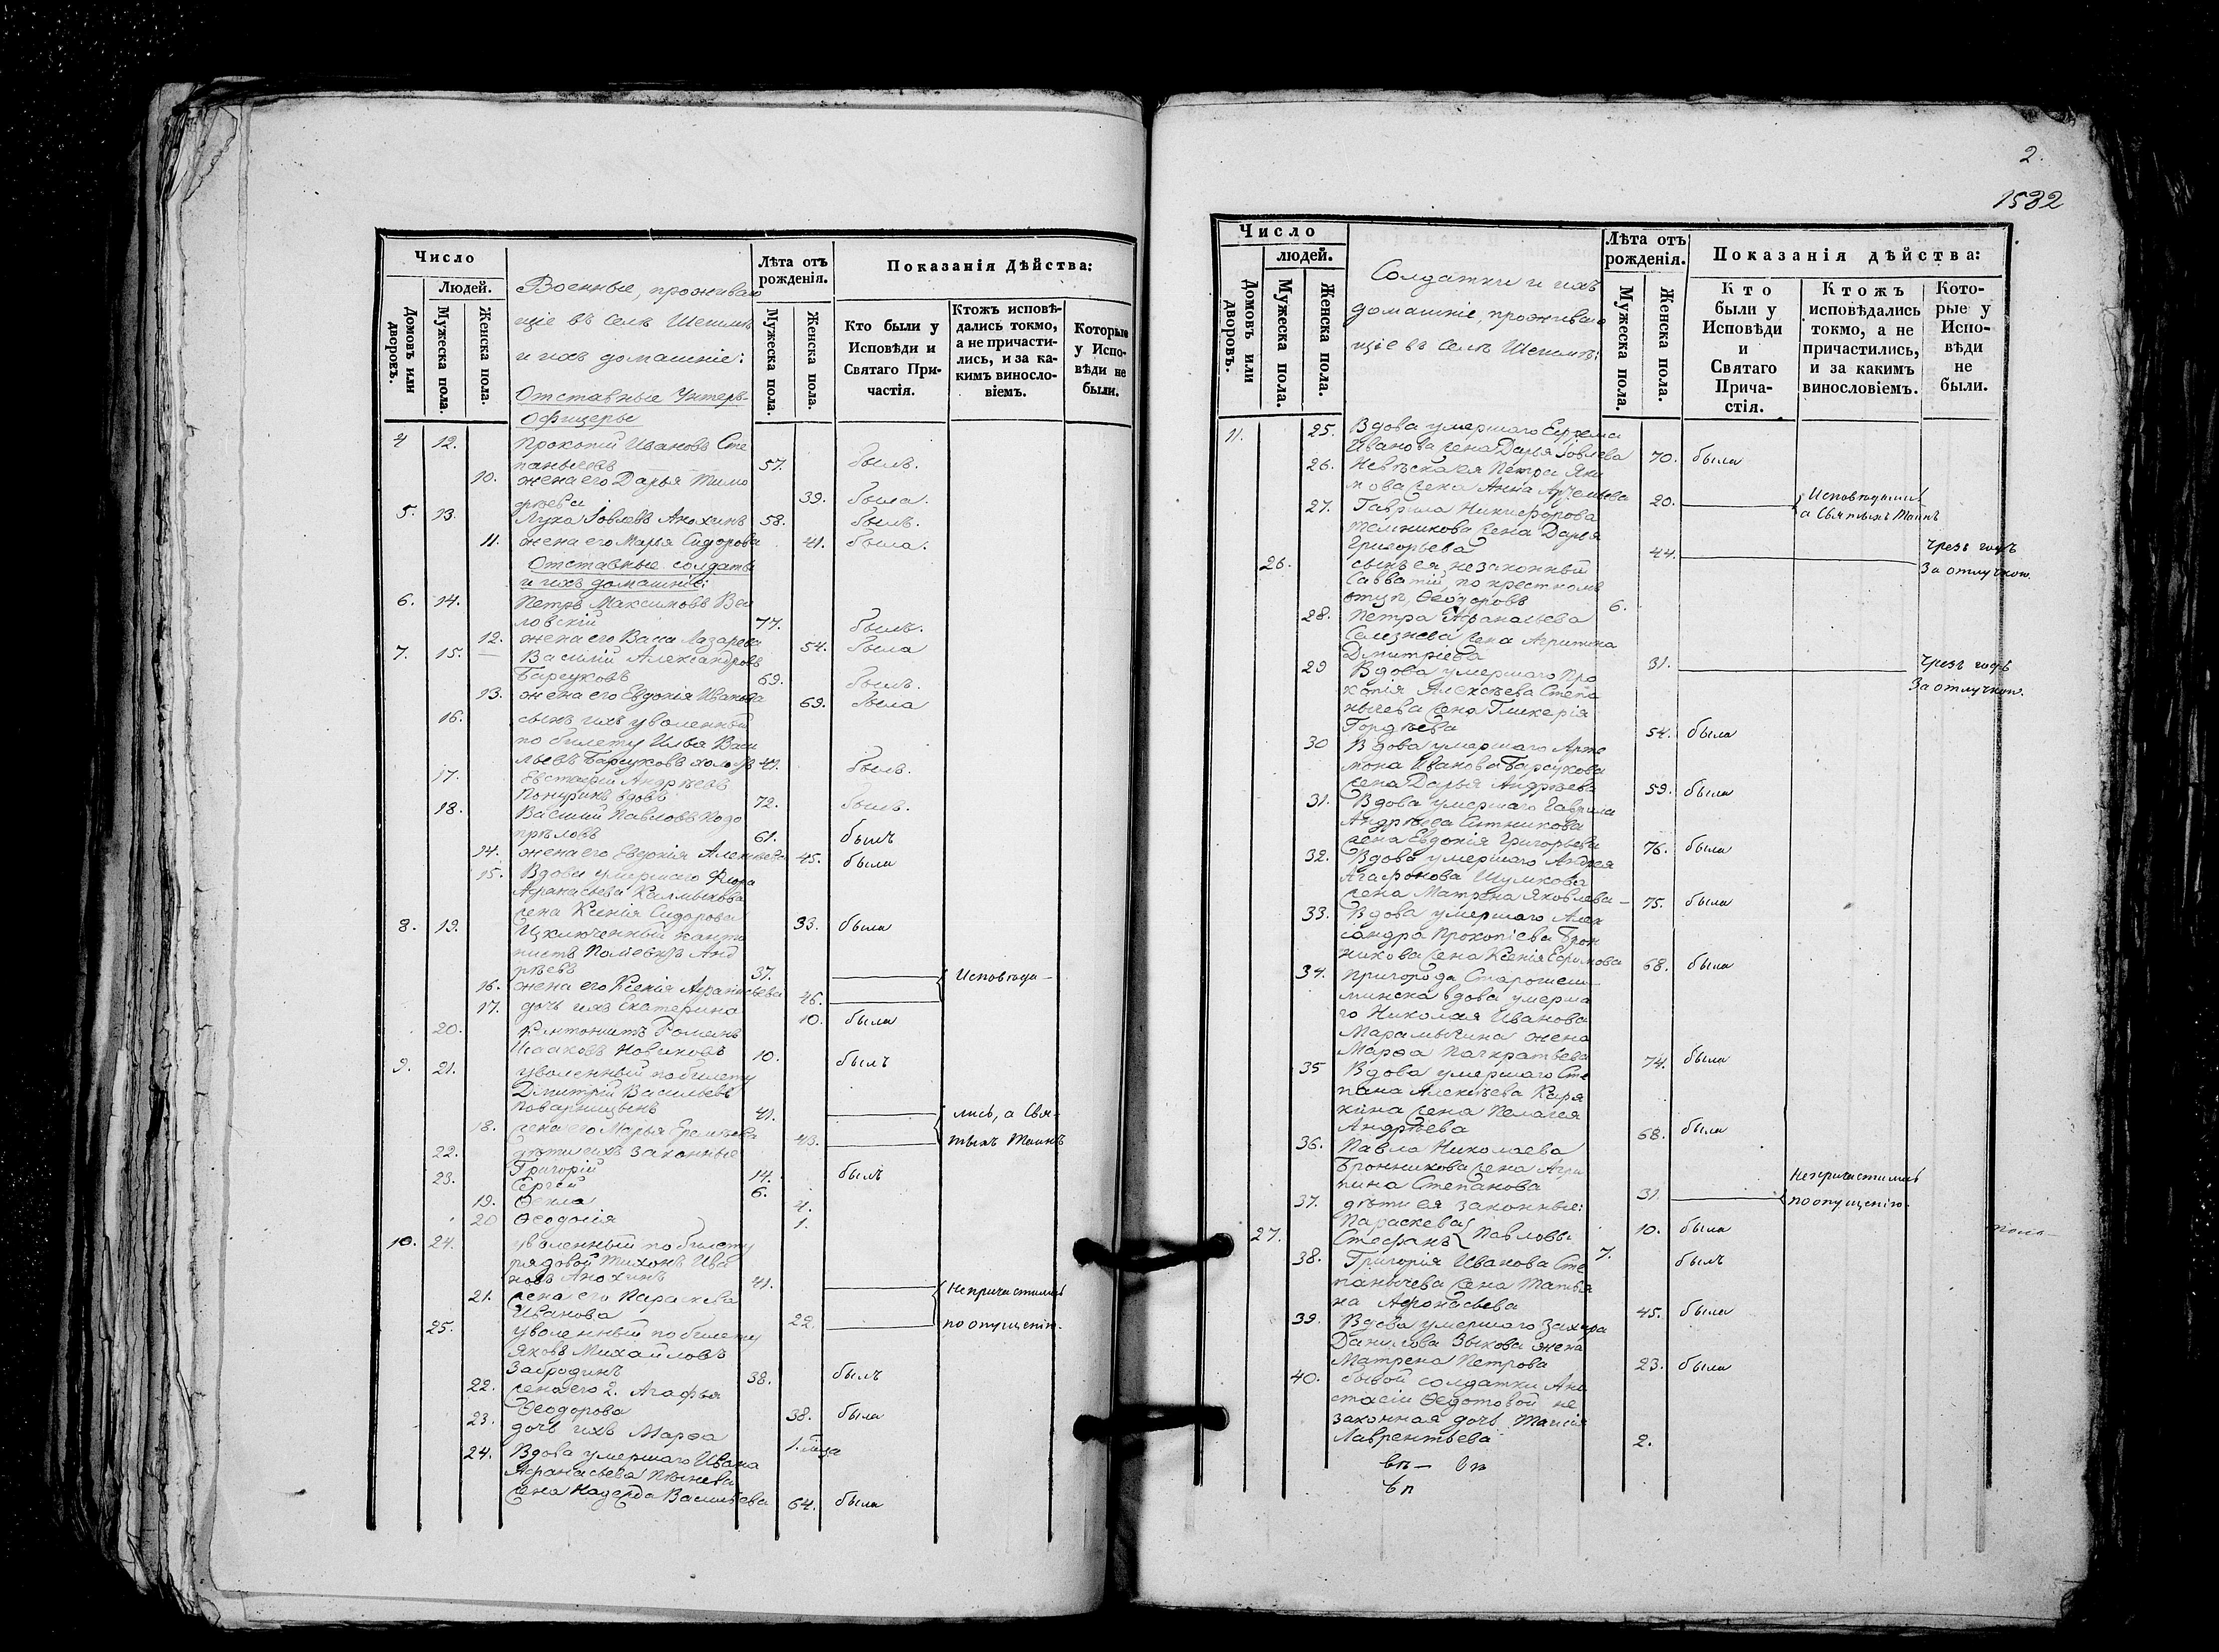 Число
Людей.
Домовъ или дворовъ.
Мужеска пола.
Женска пола.
Военные, проживаю
щіе въ селѣ Шешмѣ
и ихъ домашніе:
Отставные Унтеръ-
офицеры
Лѣта отъ рожденія.
Мужеска пола.
Женска пола.
Показанія Дѣйства:
Кто были у Исповѣди и Святаго Причастія.
Ктожъ исповѣдались токмо, а не причастились, и за какимъ винословіемъ.
Которые у Исповѣди не были.
4 12. Прокопій Ивановъ Сте
панычевъ 57. былъ.
10. жена его Дарья Тимо
фѣева 39. была.
5. 13. Лука Іовлевъ Анохинъ 58. былъ.
11. жена его Марья Сидорова 41. была.
Отставные солдаты
и ихъ домашніе:
6. 14. Петръ Максимовъ Вся
ловскій 77. былъ.
12. жена его Васса Лазарева 54. была
7. 15. Василій Александровъ
Барсуковъ 69. былъ.
13. жена его Евдокія Иванова 69. была
16. сынъ ихъ уволенный
по билету Илья Васи
льевъ Барсуковъ холостъ 41. былъ.
17. Евстафій Андрѣевъ
Понуринъ вдовъ 72. былъ.
18. Василій Павловъ Подо
прѣловъ 61. былъ
14. жена его Евдокія Алексѣева 45. была
15. Вдова умершаго Ѳедора
Афанасьева Калмыкова
жена Ксенія Сидорова 33. была
8. 19. Изключенный канто
нистъ Андрѣевъ 37. Исповѣда-
16. жена его Ксенія Афанасьева 46.
17. дочь ихъ Екатерина 10. была
20. Кантонистъ Романъ
Исааковъ Новиковъ 10. былъ
9. 21. уволенный по билету
Дмитрій Васильевъ
Поварницынъ 41. лись, а Свя-
18. жена его Марья Еремѣева 43. тыхъ Таинъ
22. дѣти ихъ законные
Григорій 14. былъ
23. Сергѣй 6.
19. Ѳекла 4.
20 Ѳеодосія 1.
10. 24. уволенный по билету
рядовой Тихонъ Ива
новъ Анохинъ 41. непричастились
21. жена его Параскева
Иванова 22. по опущенію.
25. уволенный по билету
Яковъ Михайловъ
Забродинъ 38. былъ
22. жена его 2. Агафья
Ѳеодорова 38. была
23. дочь ихъ Марѳа 1. года
24. Вдова умершаго Ивана
Афанасьева Пѣнева
жена Надежда Васильева 64. была
2.
1532
Число
людей.
Домовъ или дворовъ.
Мужеска пола.
Женска пола.
Солдатки и ихъ
домашніе, проживаю
щіе въ селѣ Шешмѣ:
Лѣта отъ рожденія.
Мужеска пола.
Женска пола.
Показанія дѣйства:
Кто были у Исповѣди и Святаго Причастія.
Ктожъ исповѣдались токмо, а не причастились, и за какимъ винословіемъ.
Которые у Исповѣди не были.
11. 25. Вдова умершаго Ефрема
Иванова жена Дарья Іовлева 70. была
26. Невѣстка ея Петра Яки
мова жена Анна Артемьева 20. Исповѣдались
а Святыхъ Таинъ
27. Гаврила Никифорова
Тельникова жена Дарья
Григорьева 44. Чрезъ годъ
За отлучкою.
26. сынъ ея незаконный
Савватій по крестномъ
отцѣ, Ѳеодоровъ 6.
28. Петра Афанасьева
Селезнева жена Агрипина
Дмитріева 31. Чрезъ годъ
За отлучкою.
29 Вдова умершаго Про
копія Алексѣева Степа
нычева жена Гликерія
Гордѣева 54. была
30 Вдова умершаго Арте
мона Иванова Барсукова
жена Дарья Андрѣева 59. была
31. Вдова умершаго Гаврила
Андрѣева Ситникова
жена Евдокія Григорьева 76. была
32. Вдова умершаго Андрея
Агафонова Шумкова
жена Матрена Яковлева 75. была
33. Вдова умершаго Алек
сандра Прокопіева Брон
никова жена Ксенія Ефимова 68. была
34. Пригорода Старошеш
минска вдова умерша
го Николая Иванова
Марамыгина жена
Марѳа Панкратьева 74. была
35 Вдова умершаго Сте
пана Алексѣева Каря
кина жена Пелагея
Андрѣева 68. была
36. Павла Николаева
Бронникова жена Агри
пина Степанова 31. непричастились
по опущенію.
37. дѣти ея законные:
Параскева 10. была
27. Стефанъ } Павловы 7. былъ
38. Григорія Иванова Сте
панычева жена Татья
на Афонасьева 45. была
39. Вдова умершаго Захара
Данилова Зыкова жена
Матрена Петрова 23. была
40. бывой солдатки Ана
стасіи Ѳедотовой не
законная дочь Таисія
Лаврентьева 2.